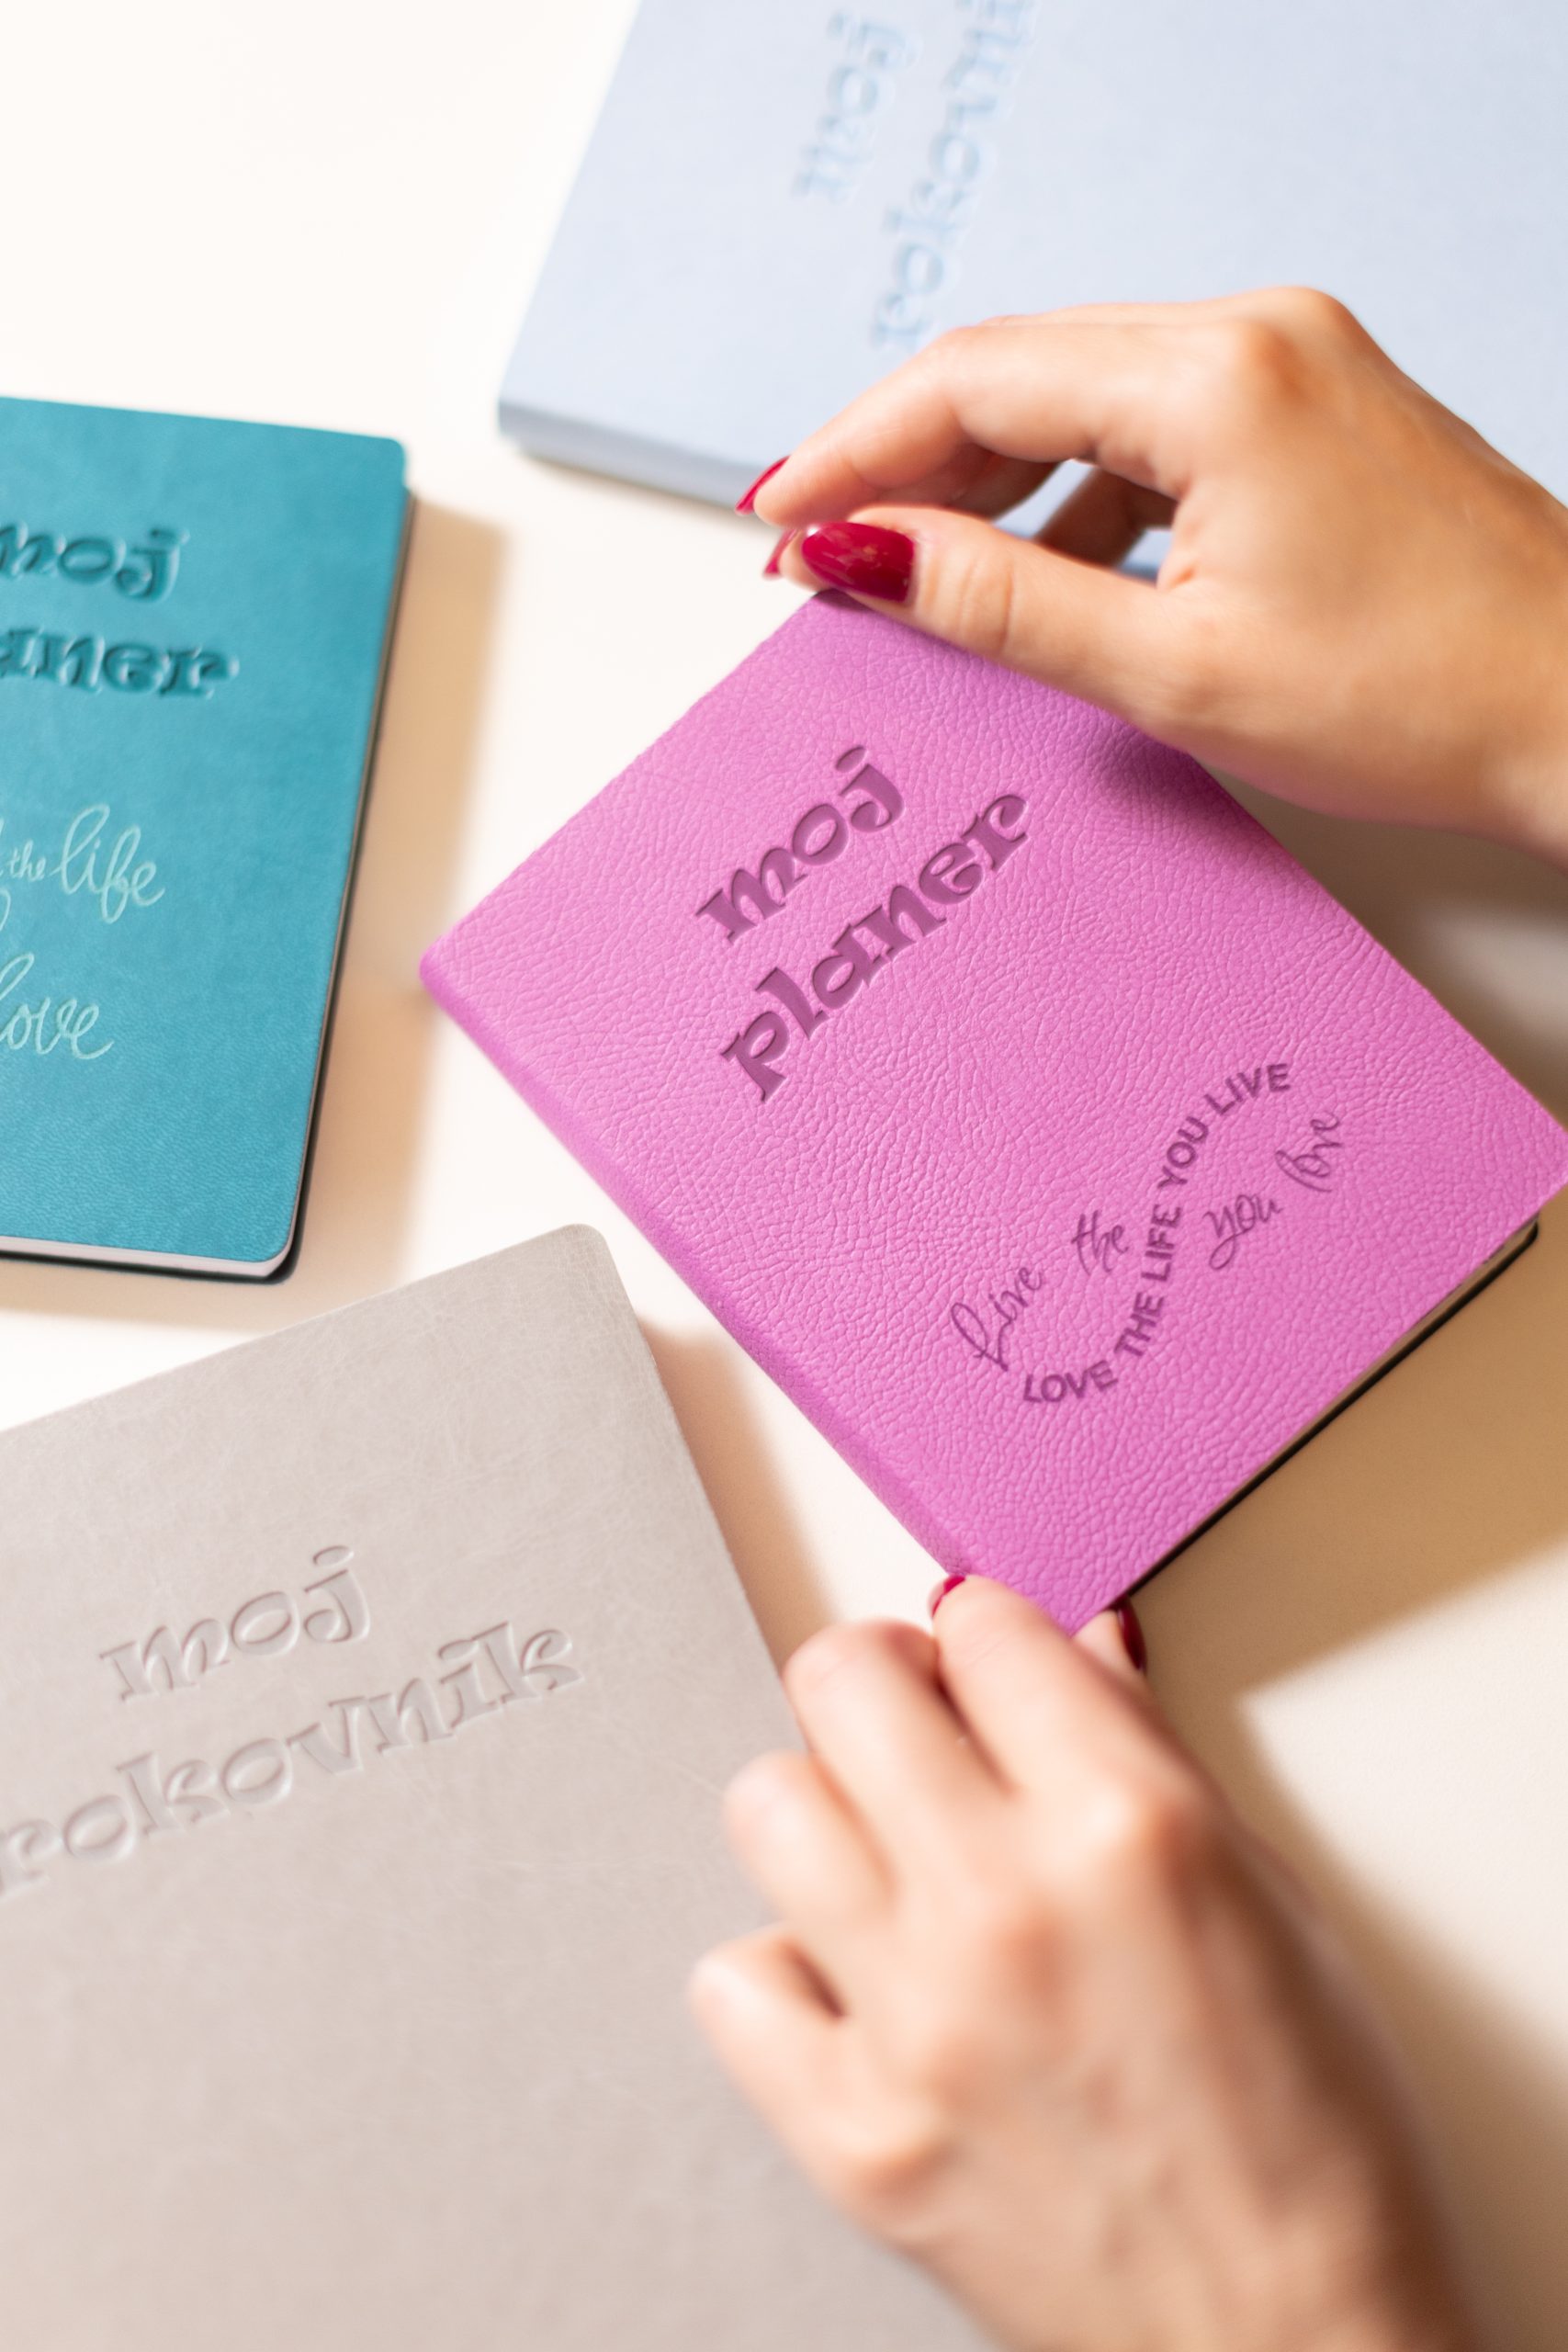 moj
rokovni
moj
aner
the life
love
moj
planer
Live the you love
LOVE THE LIFE YOU LIVE
moj
rokovnik